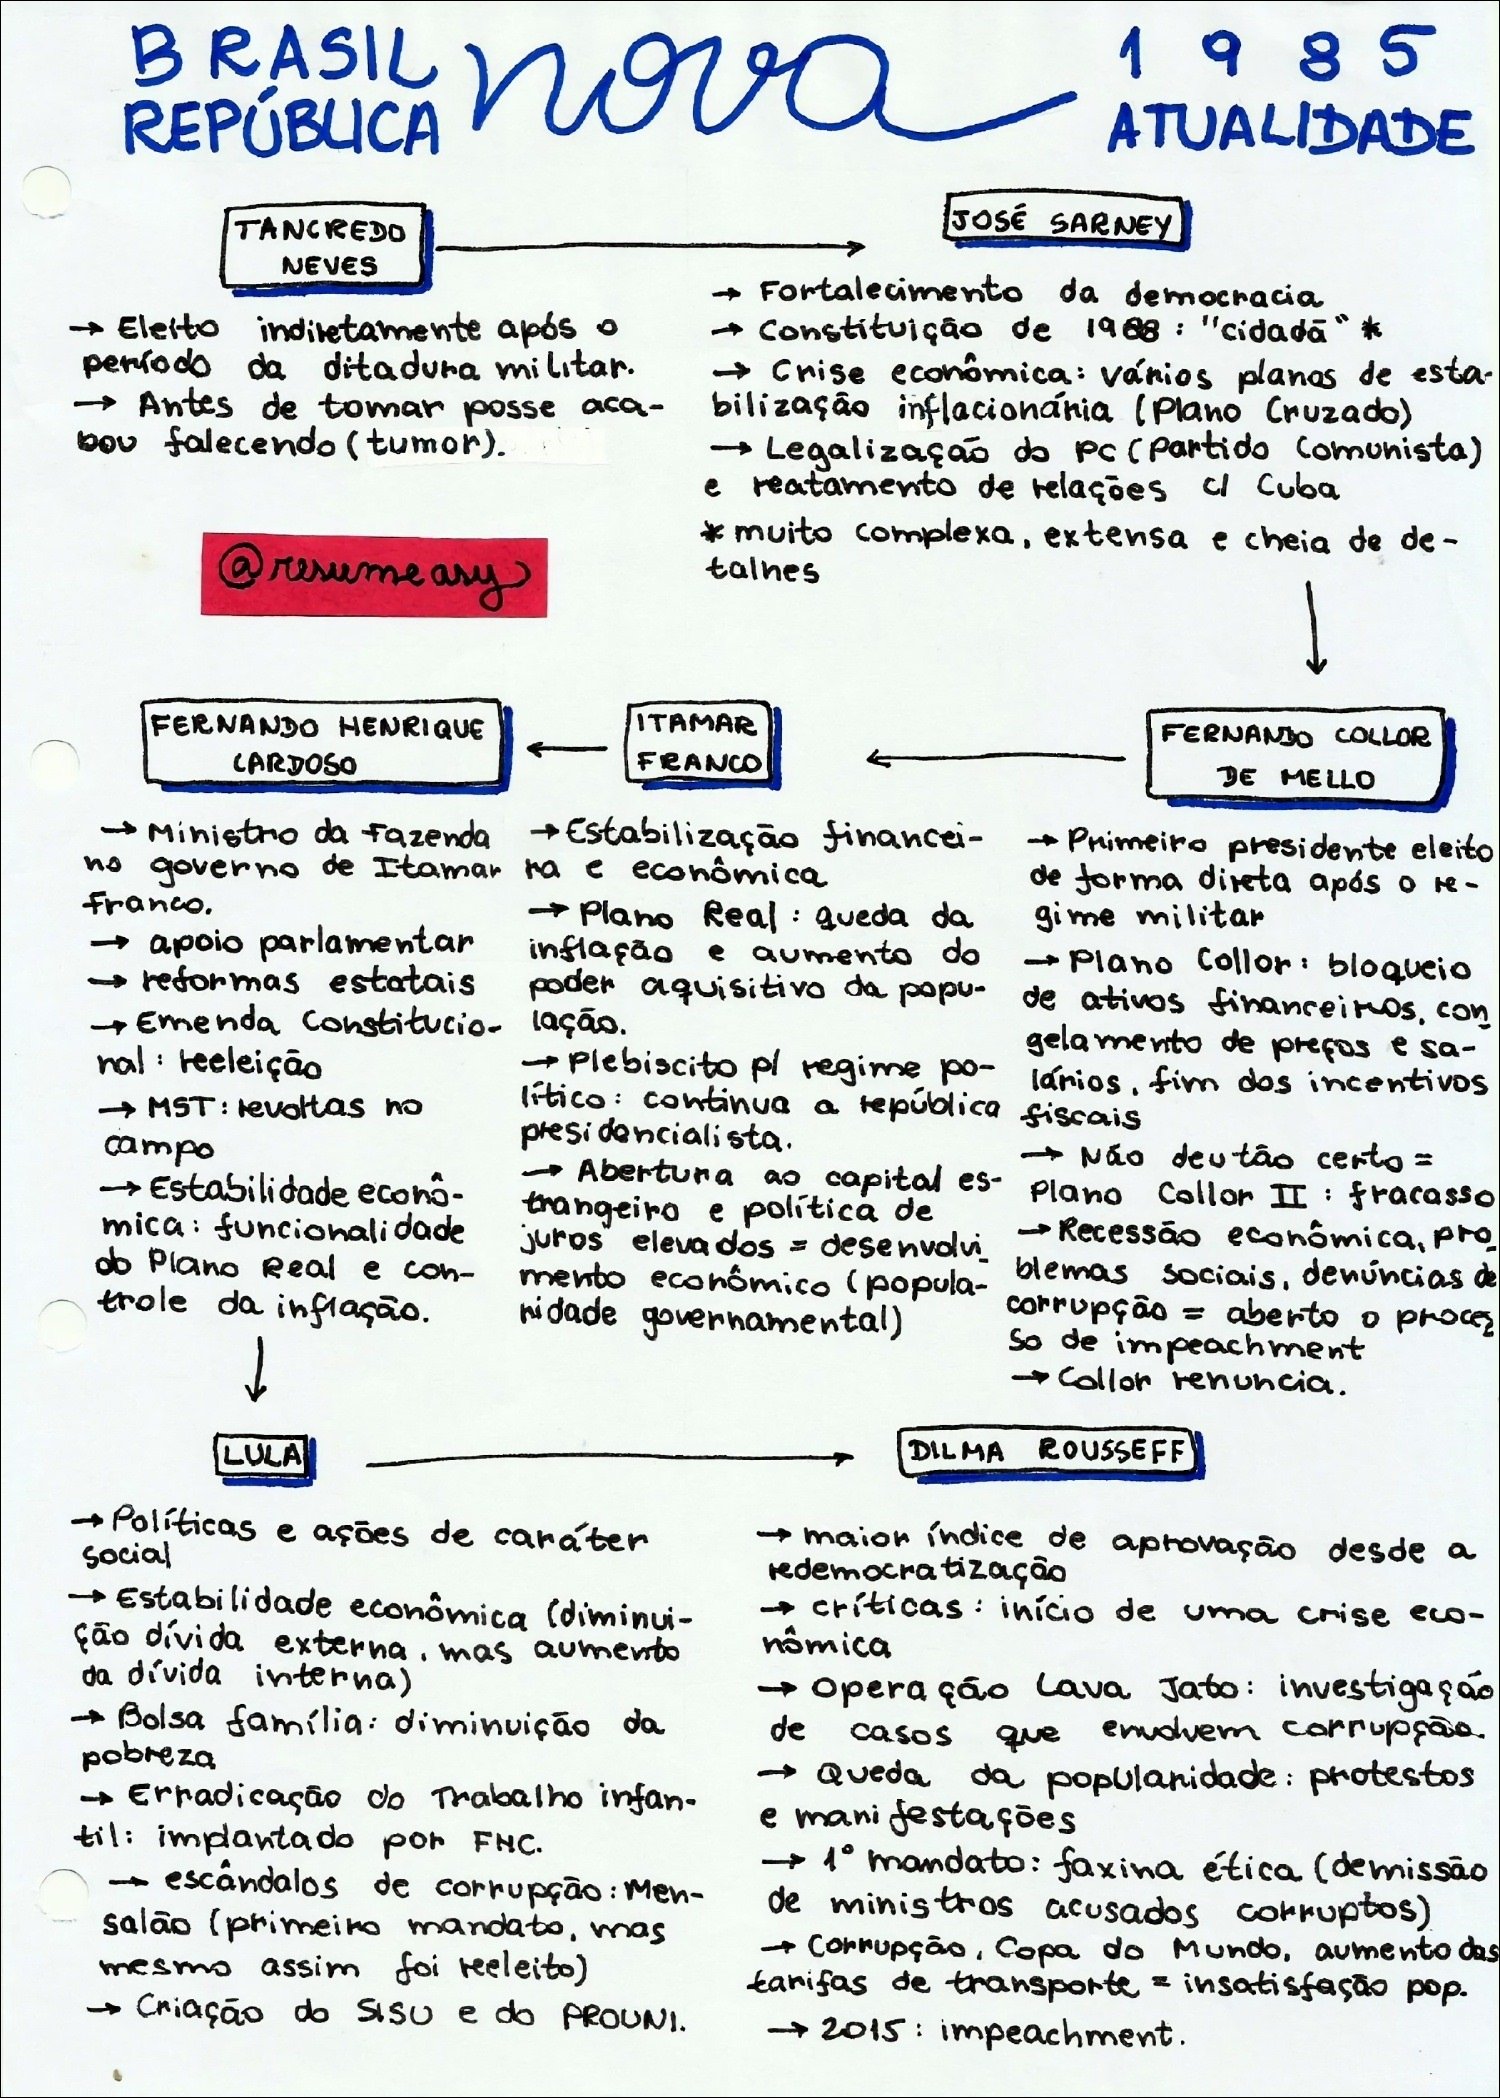 BRASIL nova 1985
REPÚBLICA ATUALIDADE
TANCREDO
NEVES
→ Eleito indiretamente após o
período da ditadura militar.
→ Antes de tomar posse aca-
bou falecendo (tumor).
JOSÉ SARNEY
→ Fortalecimento da democracia
→ Constituição de 1988: "cidadã" *
→ Crise econômica: vários planos de esta-
bilização inflacionária (Plano Cruzado)
→ Legalização do PC (Partido Comunista)
e reatamento de relações c/ Cuba
* muito complexa, extensa e cheia de de-
talhes
@resumeasy
FERNANDO HENRIQUE
CARDOSO
→ Ministro da Fazenda
no governo de Itamar
Franco.
→ apoio parlamentar
→ reformas estatais
→ Emenda Constitucio-
nal: reeleição
→ MST: revoltas no
campo
→ Estabilidade econô-
mica: funcionalidade
do Plano Real e con-
trole da inflação.
ITAMAR
FRANCO
→ Estabilização financei-
ra e econômica
→ Plano Real: queda da
inflação e aumento do
poder aquisitivo da popu-
lação.
→ Plebiscito p/ regime po-
lítico: continua a república
presidencialista.
→ Abertura ao capital es-
trangeiro e política de
juros elevados = desenvolvi-
mento econômico (popula-
ridade governamental)
FERNANDO COLLOR
DE MELLO
→ Primeiro presidente eleito
de forma direta após o re-
gime militar
→ Plano Collor: bloqueio
de ativos financeiros, con-
gelamento de preços e sa-
lários, fim dos incentivos
fiscais
→ Não deu tão certo =
Plano Collor II: fracasso
→ Recessão econômica, pro-
blemas sociais, denúncias de
corrupção = aberto o proces-
so de impeachment
→ Collor renuncia.
LULA
→ Políticas e ações de caráter
social
→ Estabilidade econômica (diminui-
ção dívida externa, mas aumento
da dívida interna)
→ Bolsa família: diminuição da
pobreza
→ Erradicação do Trabalho infan-
til: implantado por FHC.
→ escândalos de corrupção: Men-
salão (primeiro mandato, mas
mesmo assim foi reeleito)
→ Criação do SISU e do PROUNI.
DILMA ROUSSEFF
→ maior índice de aprovação desde a
redemocratização
→ críticas: início de uma crise eco-
nômica
→ Operação Lava Jato: investigação
de casos que envolvem corrupção.
→ Queda da popularidade: protestos
e manifestações
→ 1° mandato: faxina ética (demissão
de ministros acusados corruptos)
→ Corrupção, Copa do Mundo, aumento das
tarifas de transporte = insatisfação pop.
→ 2015: impeachment.